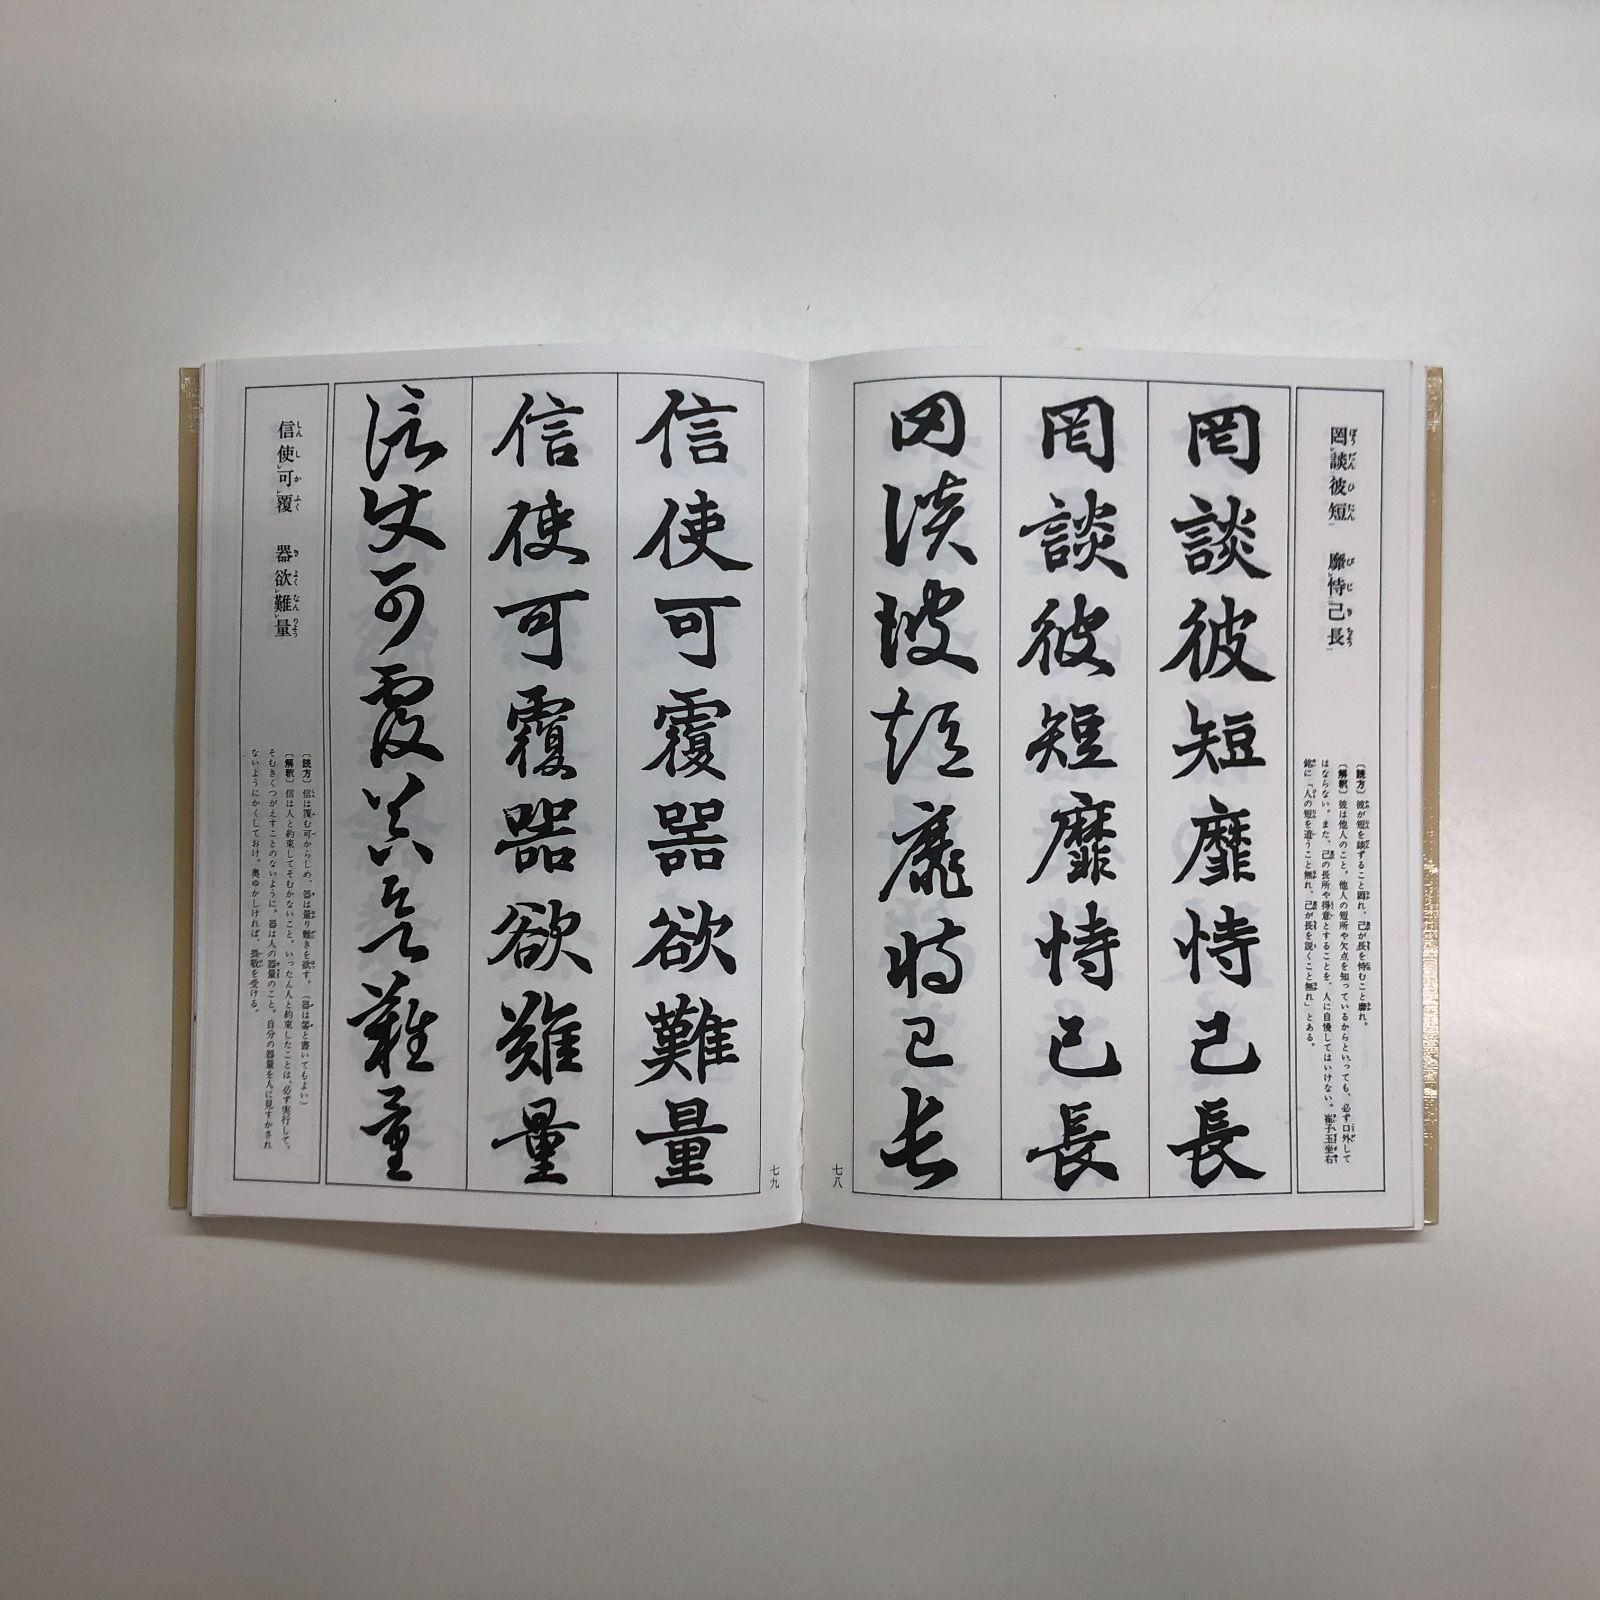 罔談彼短　靡恃己長
〔読方〕彼が短を談ずること罔れ、己が長を恃むこと靡れ。
〔解釈〕彼は他人のこと。他人の短所や欠点を知っているからといっても、必ず口外して
はならない。また、己の長所や得意とすることを、人に自慢してはいけない。崔子玉坐右
銘に「人の短を道うこと無れ、己が長を説くこと無れ」とある。
罔談彼短靡恃己長
罔談彼短靡恃己長
罔談彼短靡恃己長
七八
信使可覆器欲難量
信使可覆器欲難量
信使可覆器欲難量
七九
信使可覆　器欲難量
〔読方〕信は覆む可からしめ、器は量り難きを欲す。
〔解釈〕信は人と約束してそむかないこと。いったん人と約束したことは、必ず実行して、
そむきくつがえすことのないように。器は人の器量のこと。自分の器量を人に見すかされ
ないようにかくしておけ。奥ゆかしければ、畏敬を受ける。